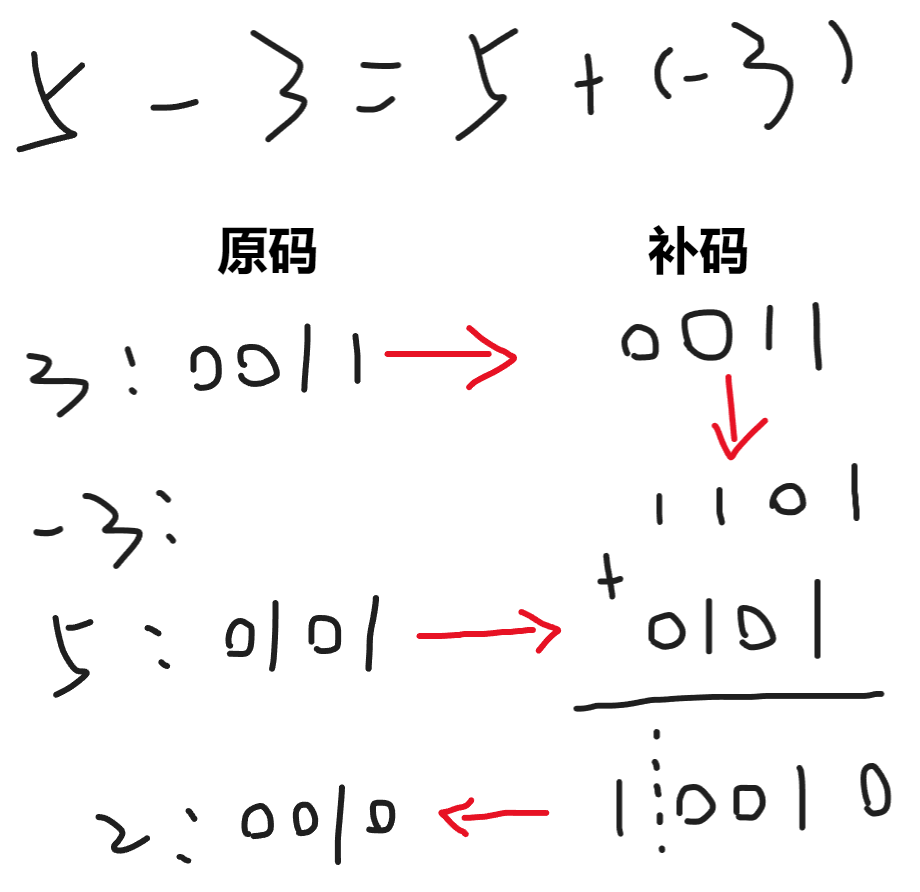 5 - 3 = 5 + (-3)
原码 补码
3: 0011 → 0011
-3: 1101
+
5: 0101 → 0101
2: 0010 ← 1 0010